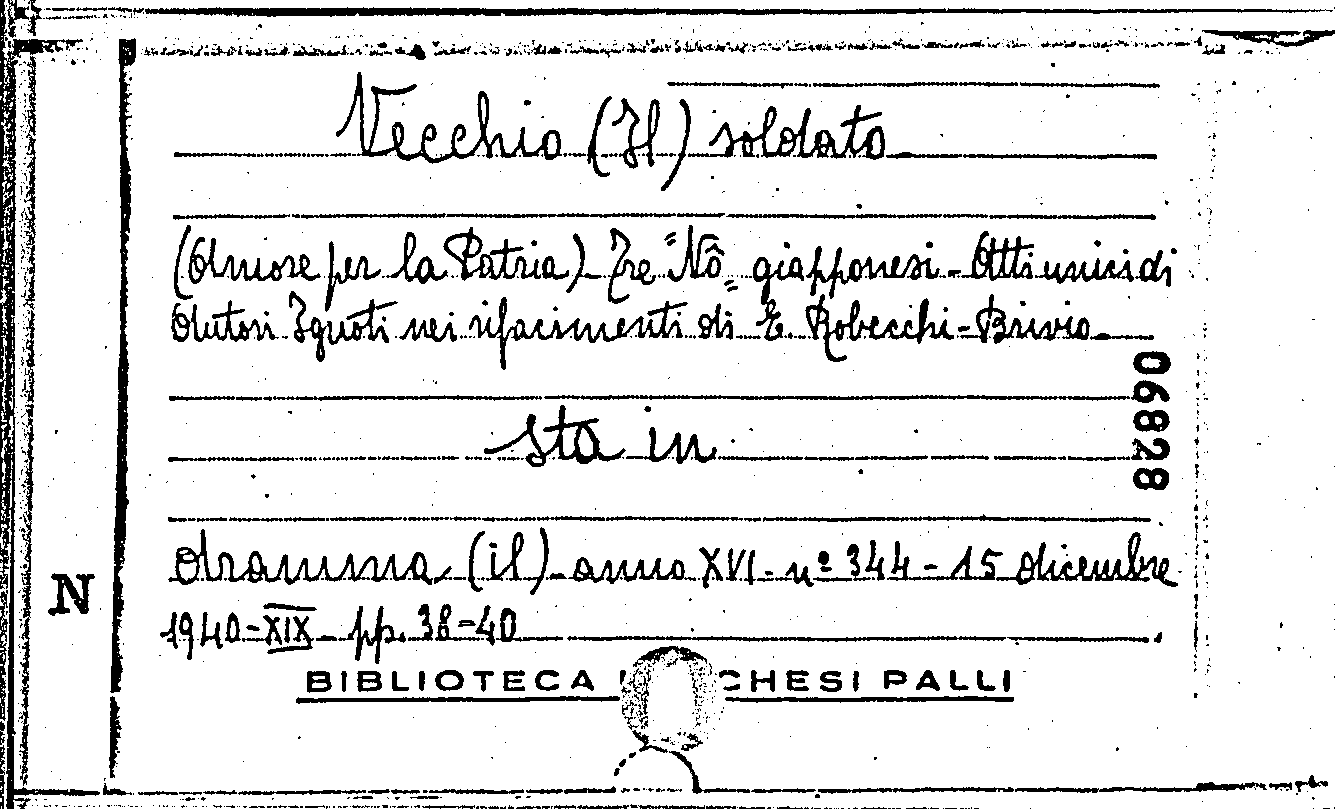 Vecchio (Il) soldato
(Amore per la Patria) - Tre "Nô" giapponesi - Atti unici di
Autori Ignoti nei rifacimenti di E. Robecchi-Brivio
06828
sta in
dramma (il) - anno XVI - nº 344 - 15 dicembre
N
1940-XIX - pp. 38-40
BIBLIOTECA CHESI PALLI